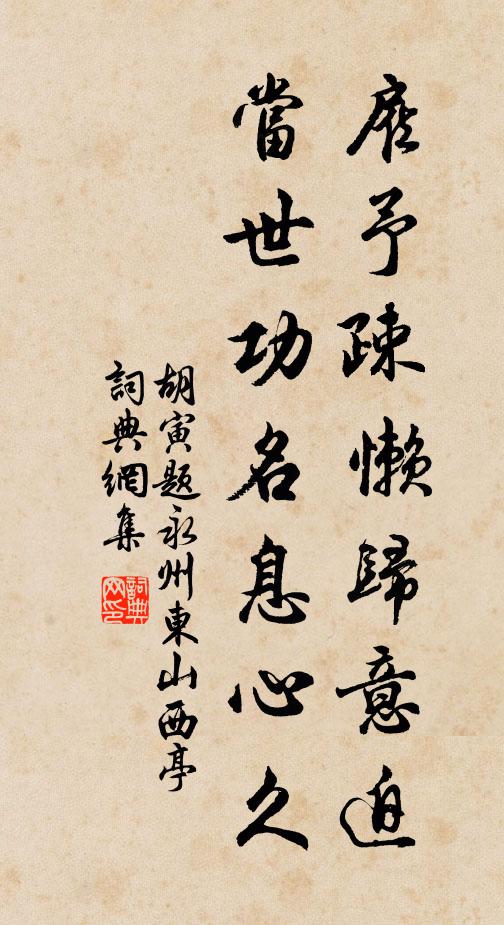 顧予疎懶歸意迫
當世功名息心久
胡寅題永州東山西亭
詞典網集
詞典